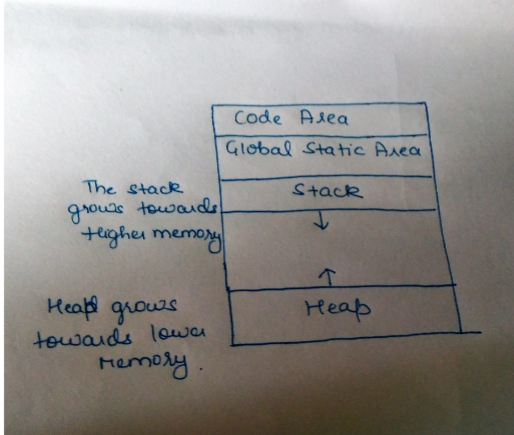 Code Area
Global Static Area
The stack
grows towards
Higher memory
Stack
Heap grows
towards lower
Memory.
Heap